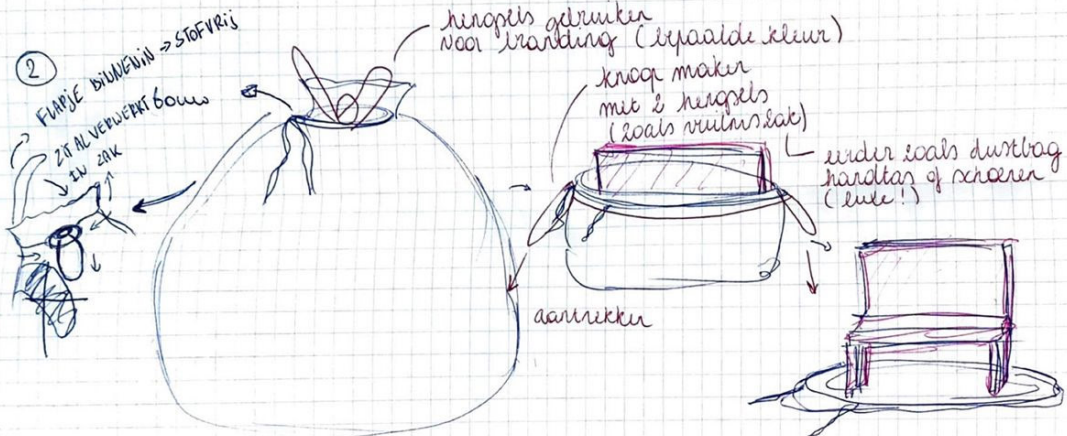 2
FLAPJE BINNENIN → STOFVRIJ
ZIT AL VERWERKT
IN ZAK
hengsels gebruiken
voor branding (bepaalde kleur)
knoop maken
met 2 hengsels
(zoals vuilniszak)
eerder zoals dustbag
handtas of schoenen
(luxe!)
aantrekken